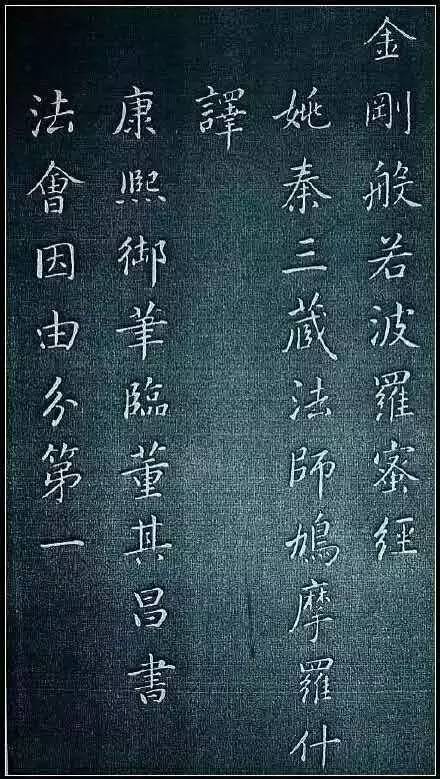 金剛般若波羅蜜經
姚秦三蔵法師鳩摩羅什
譯
康熙御筆臨董其昌書
法會因由分第一